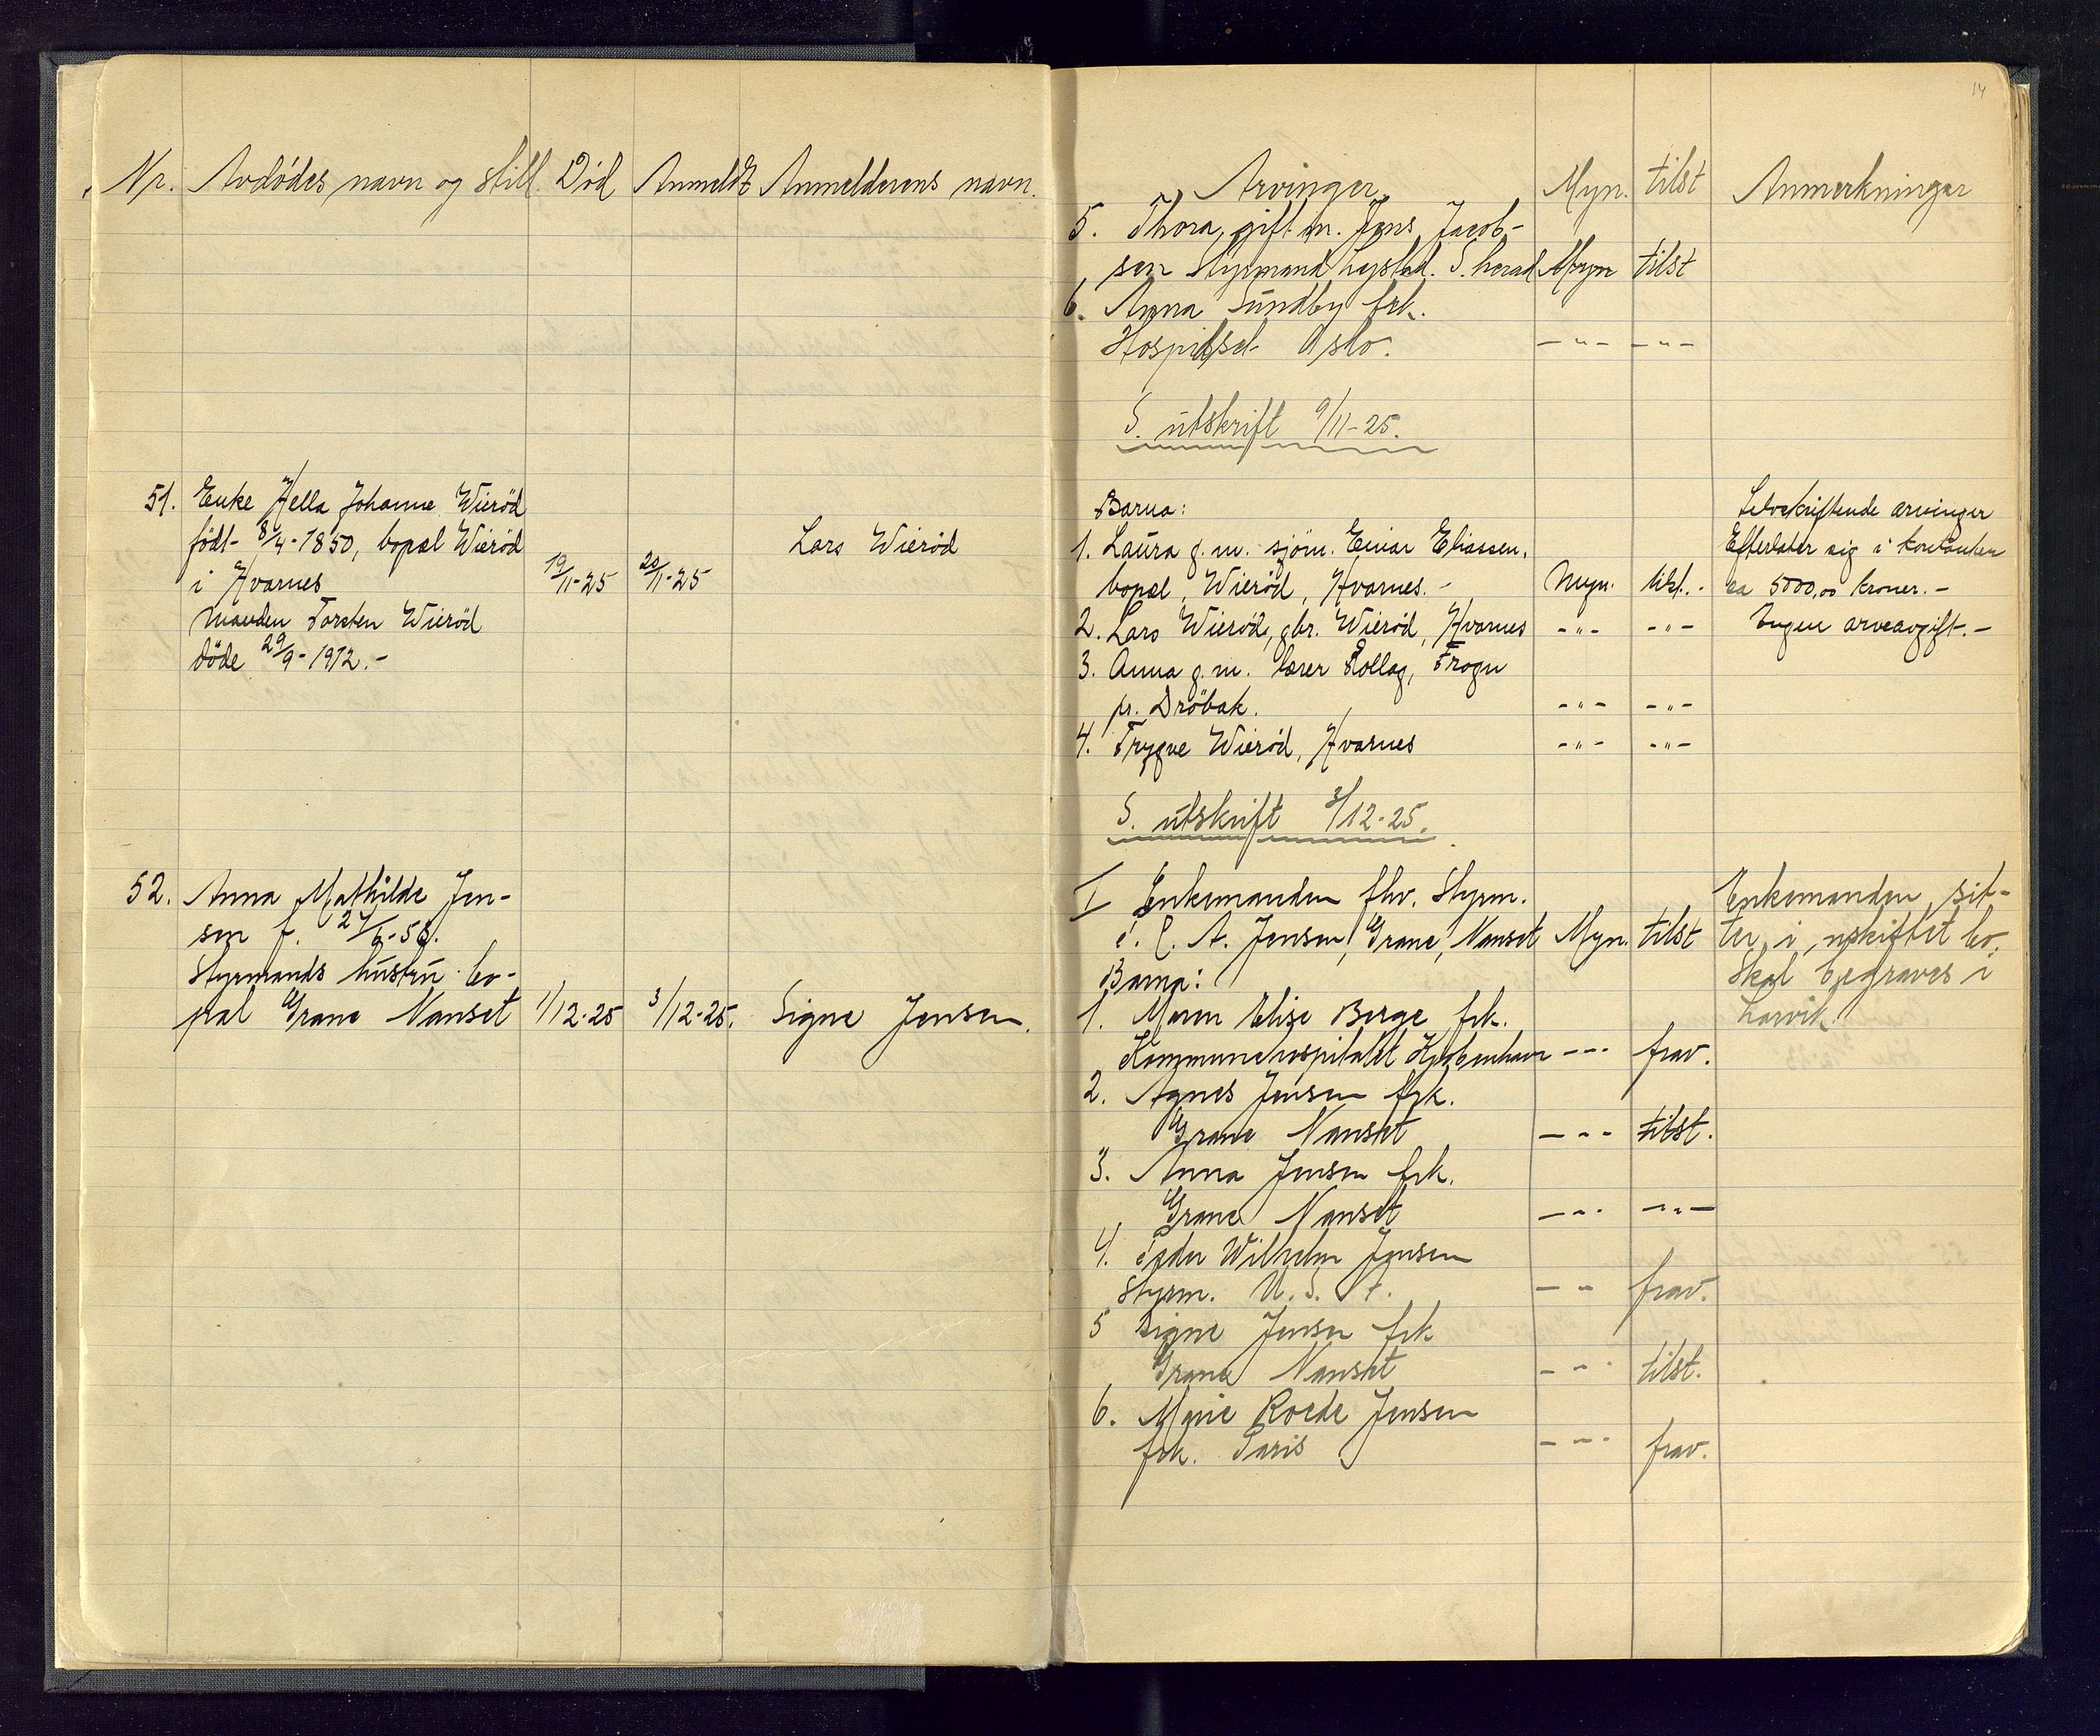 14
Nr. Avdödes navn og still. Död Anmeldt Anmelderens navn.
Arvinger Myn. tilst Anmerkninger
5. Thora, gift m. Jens Jacob-
sen Styrmand Lystad. S. herad Myn tilst
6. Anna Sundby frk.
Hospidset Oslo. - " - - " -
S. utskrift 9/11-25.
51. Enke Hella Johanne Wieröd
födt 8/4-1850, bopæl Wieröd
i Hvarnes 19/11-25 20/11-25 Lars Wieröd
manden Torsten Wieröd
döde 29/9-1912.-
Barna:
1. Laura g. m. sjöm. Einar Eliassen,
bopæl, Wieröd, Hvarnes.- Myn. tilst.-
2. Lars Wieröd, gbr. Wieröd, Hvarnes - " - - " -
3. Anna g. m. lærer Rollag, Frogn
pr. Dröbak. - " - - " -
4. Trygve Wieröd, Hvarnes - " - - " -
Selvskriftende arvinger
Efterlater sig i kontanter
ca 5000,00 kroner.-
Ingen arveavgift.-
S. utskrift 3/12-25.
52. Anna Mathilde Jen-
sen f. /6-56.
Styrmands hustru bo-
pæl Grane Nanset 1/12-25 3/12-25. Signe Jensen.
I Enkemanden fhv. Styrm.
C. A. Jensen, Grane, Nanset Myn. tilst
Barna:
1. Maren Elise Berge frk.
Kommunehospitalet Kjøbenhavn - " - frav.
2. Agnes Jensen frk.
Grane Nanset - " - tilst.
3. Anna Jensen frk.
Grane Nanset - " - - " -
4. Peder Wilhelm Jensen
Styrm. U. S. A. - " - frav.
5 Signe Jensen frk
Grane Nanset - " - tilst.
6. Roede Jensen
frk. Paris - " - frav.
Enkemanden sit-
ter i uskiftet bo.
Skal begraves i
Larvik.